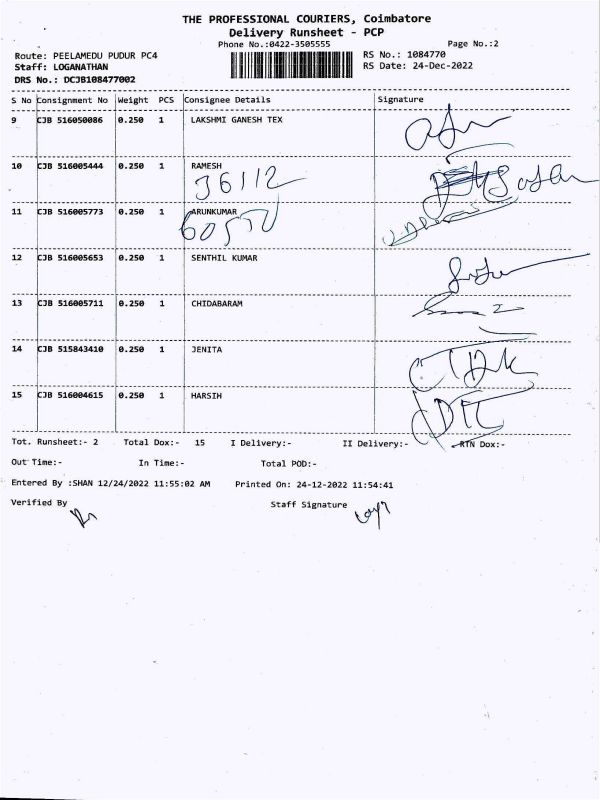 THE PROFESSIONAL COURIERS, Coimbatore
Delivery Runsheet - PCP
Phone No.:0422-3505555 Page No.:2
Route: PEELAMEDU PUDUR PC4 RS No.: 1084770
Staff: LOGANATHAN RS Date: 24-Dec-2022
DRS No.: DCJB108477002
S No Consignment No Weight PCS Consignee Details Signature
9 CJB 516050086 0.250 1 LAKSHMI GANESH TEX
10 CJB 516005444 0.250 1 RAMESH
36112
11 CJB 516005773 0.250 1 ARUNKUMAR
12 CJB 516005653 0.250 1 SENTHIL KUMAR
13 CJB 516005711 0.250 1 CHIDABARAM
14 CJB 515843410 0.250 1 JENITA
15 CJB 516004615 0.250 1 HARSIH
Tot. Runsheet:- 2 Total Dox:- 15 I Delivery:- II Delivery:- RTN Dox:-
Out Time:- In Time:- Total POD:-
Entered By :SHAN 12/24/2022 11:55:02 AM Printed On: 24-12-2022 11:54:41
Verified By Staff Signature